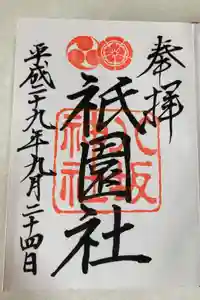 奉拝
祇園社
八坂神社
平成二十九年九月二十四日